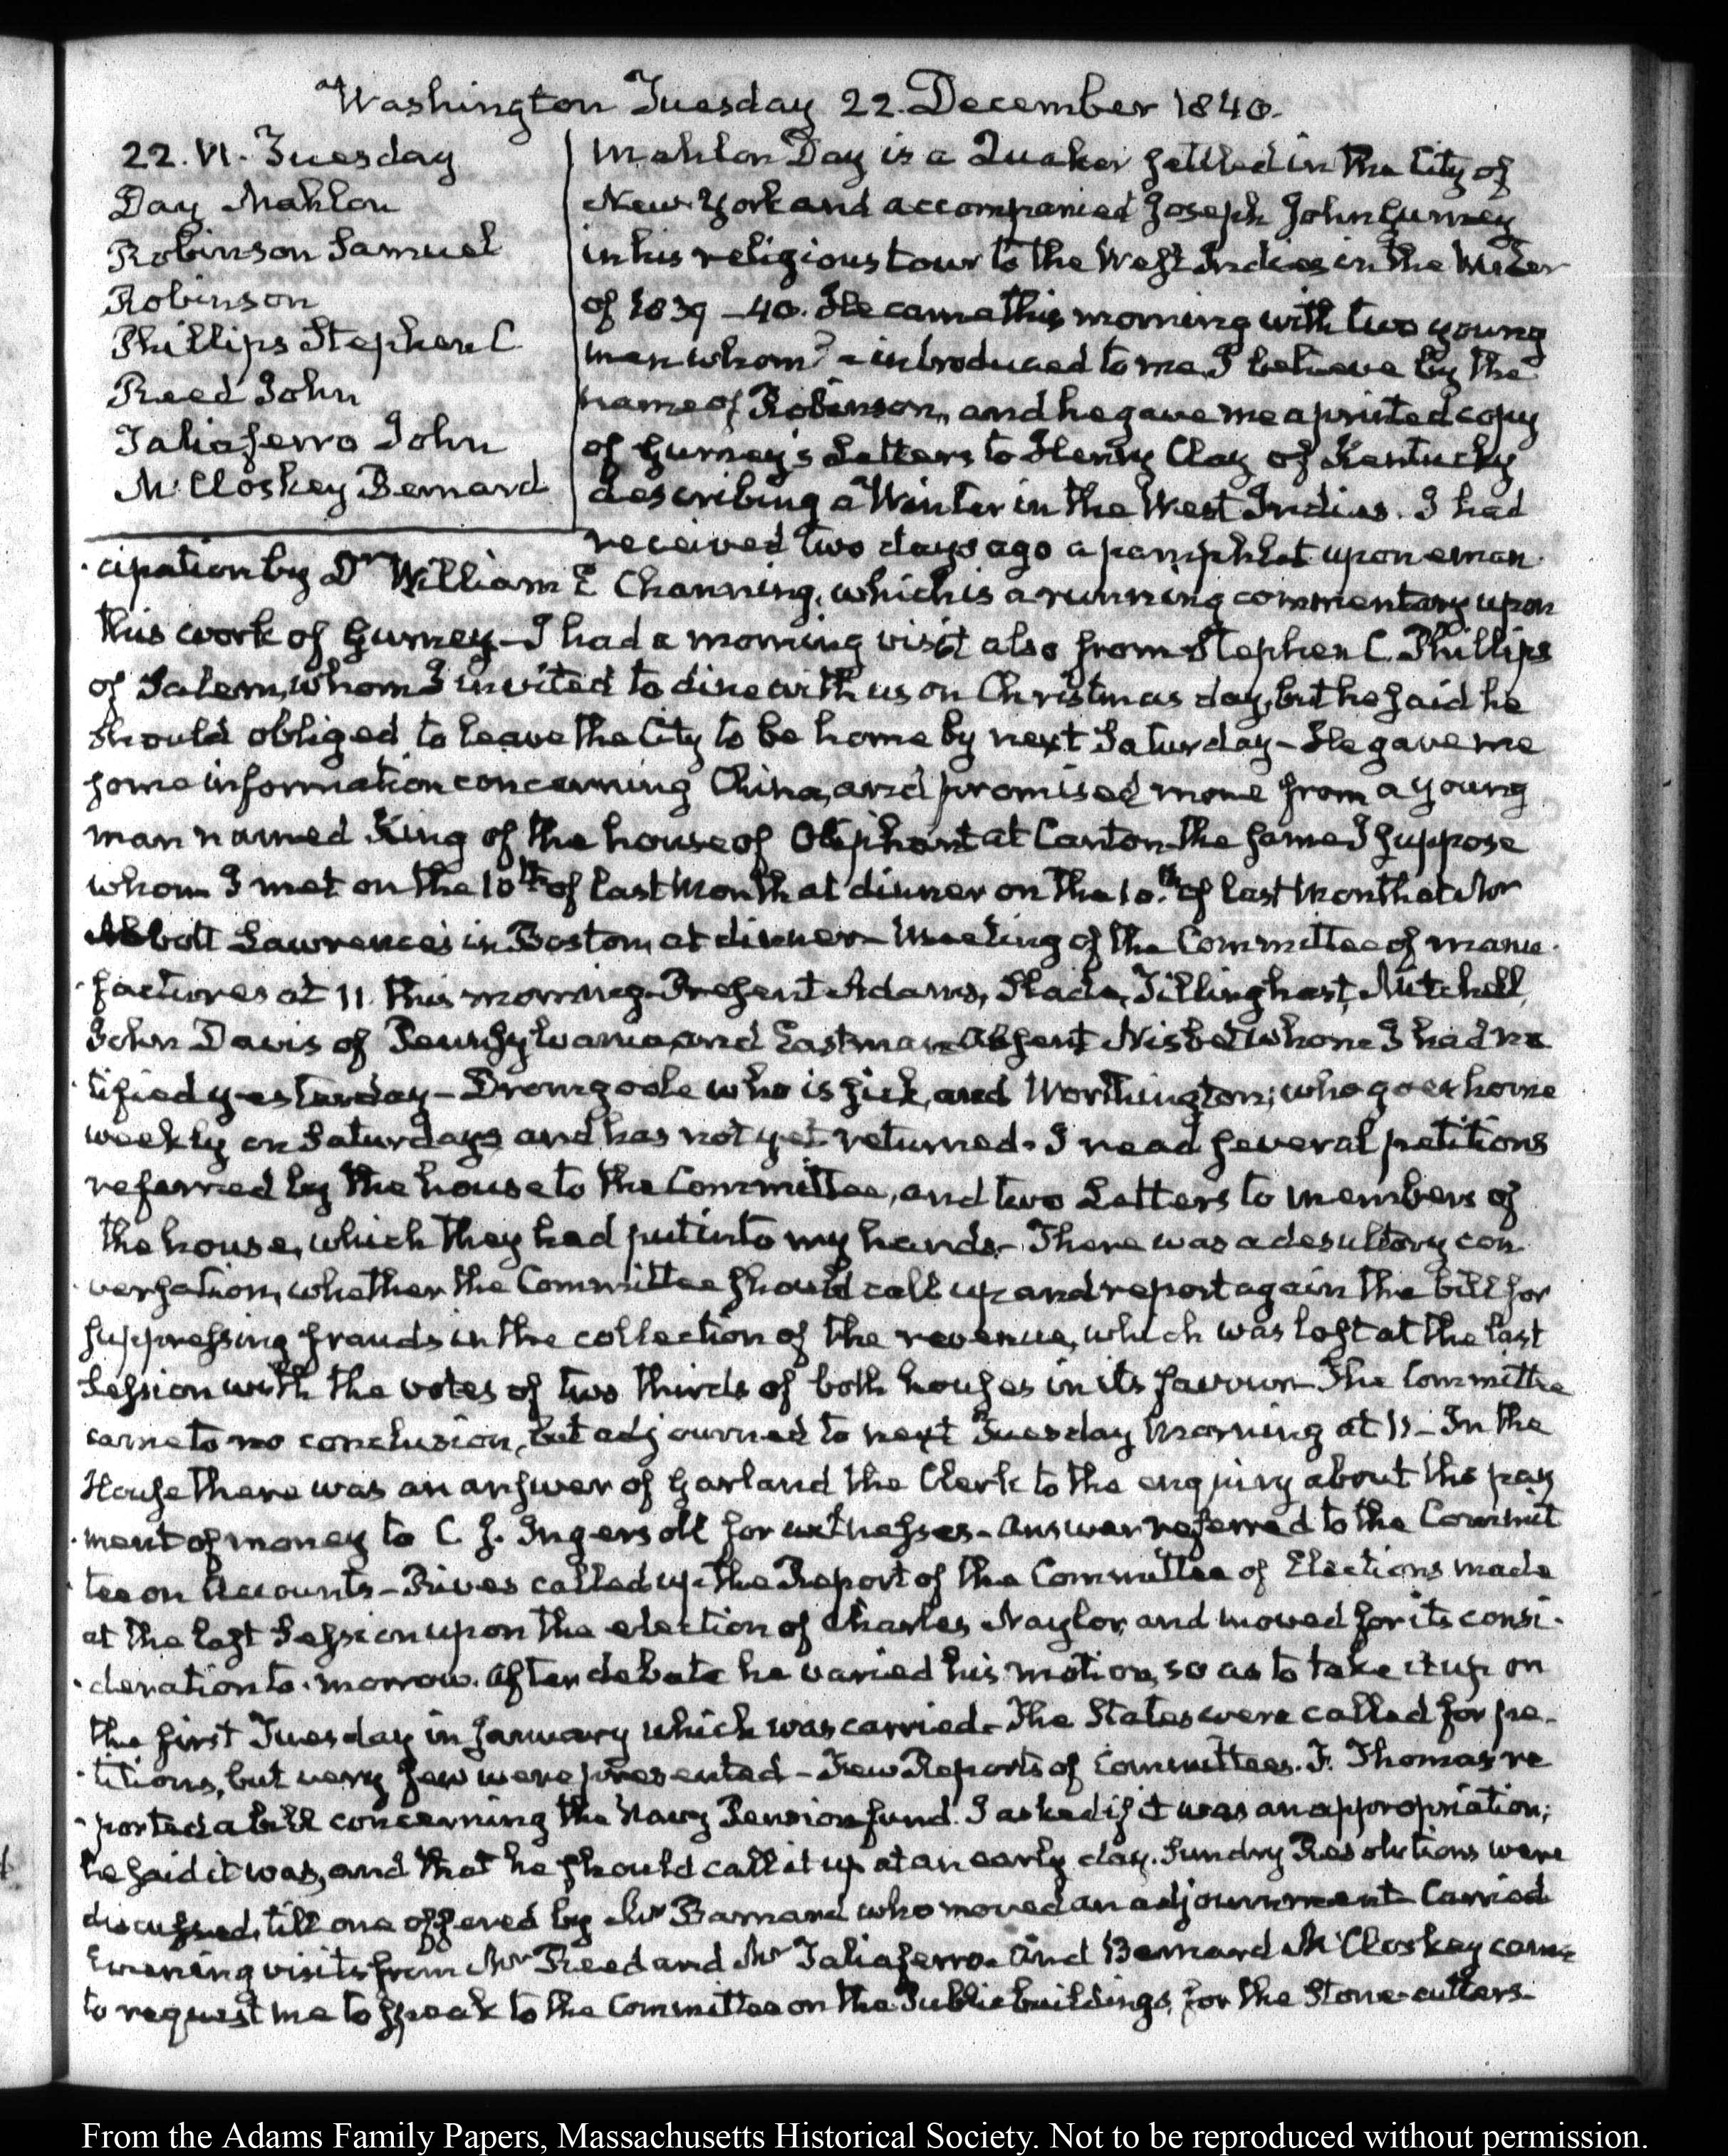 Washington Tuesday 22. December 1840.
22. VI. Tuesday
Day Mahlon
Robinson Samuel
Robinson
Phillips Stephen C
Reed John
Taliaferro John
McCloskey Bernard
Mahlon Day is a Quaker settled in the City of
New-York and accompanied Joseph John Gurney
in his religious tour to the West Indies in the Winter
of 1839-40. He came this morning with two young
men whom he introduced to me I believe by the
name of Robinson, and he gave me a printed copy
of Gurney's Letters to Henry Clay of Kentucky
describing a Winter in the West Indies. I had
received two days ago a pamphlet upon eman-
cipation by Dr William E Channing, which is a running commentary upon
this work of Gurney- I had a morning visit also from Stephen C. Phillips
of Salem, whom I invited to dine with us on Christmas day, but he said he
should obliged to leave the City to be home by next Saturday- He gave me
some information concerning China, and promised more from a young
man named King of the house of Olyphant at Canton the same I suppose
whom I met on the 10th of last Month at dinner on the 10th. of last Month at Mr
Abbott Lawrence's in Boston, at dinner- Meeting of the Committee of manu-
factures at 11. this morning- Present Adams, Slade, Tillinghast, Mitchell,
John Davis of Pennsylvania, and Eastman. Absent Nisbet whom I had no
tified yesterday- Dromgoole who is sick, and Worthington; who goes home
weekly on Saturdays and has not yet returned. I read several petitions
referred by the house to the Committee, and two Letters to members of
the house, which they had put into my hands- There was a desultory con
versation, whether the Committee should call up and report again the bill for
suppressing frauds in the collection of the revenue, which was lost at the last
Session with the votes of two thirds of both houses in its favour- The Committee
came to no conclusion, but adjourned to next Tuesday Morning at 11- In the
House there was an answer of Garland the Clerk to the enquiry about the pay
ment of money to C. J. Ingersoll for witnesses- Answer referred to the Commit
tee on Accounts- Rives called up the Report of the Committee of Elections made
at the last Session upon the election of Charles Naylor, and moved for its consi-
deration to-morrow. After debate he varied his motion, so as to take it up on
the first Tuesday in January which was carried- The States were called for pe-
titions, but very few were presented- Few Reports of Committees. F. Thomas re
ported a bill concerning the Navy Pension fund. I asked if it was an appropriation;
he said it was, and that he should call it up at an early day. Sundry Resolutions were
discussed, till one offered by Mr Barnard who moved an adjournment- Carried
Evening visits from Mr Reed and Mr Taliaferro. And Bernard McCloskey came
to request me to speak to the Committee on the Public buildings, for the Stone-cutters-
From the Adams Family Papers, Massachusetts Historical Society. Not to be reproduced without permission.